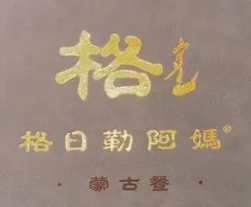 格
格日勒阿媽®
·蒙古餐·